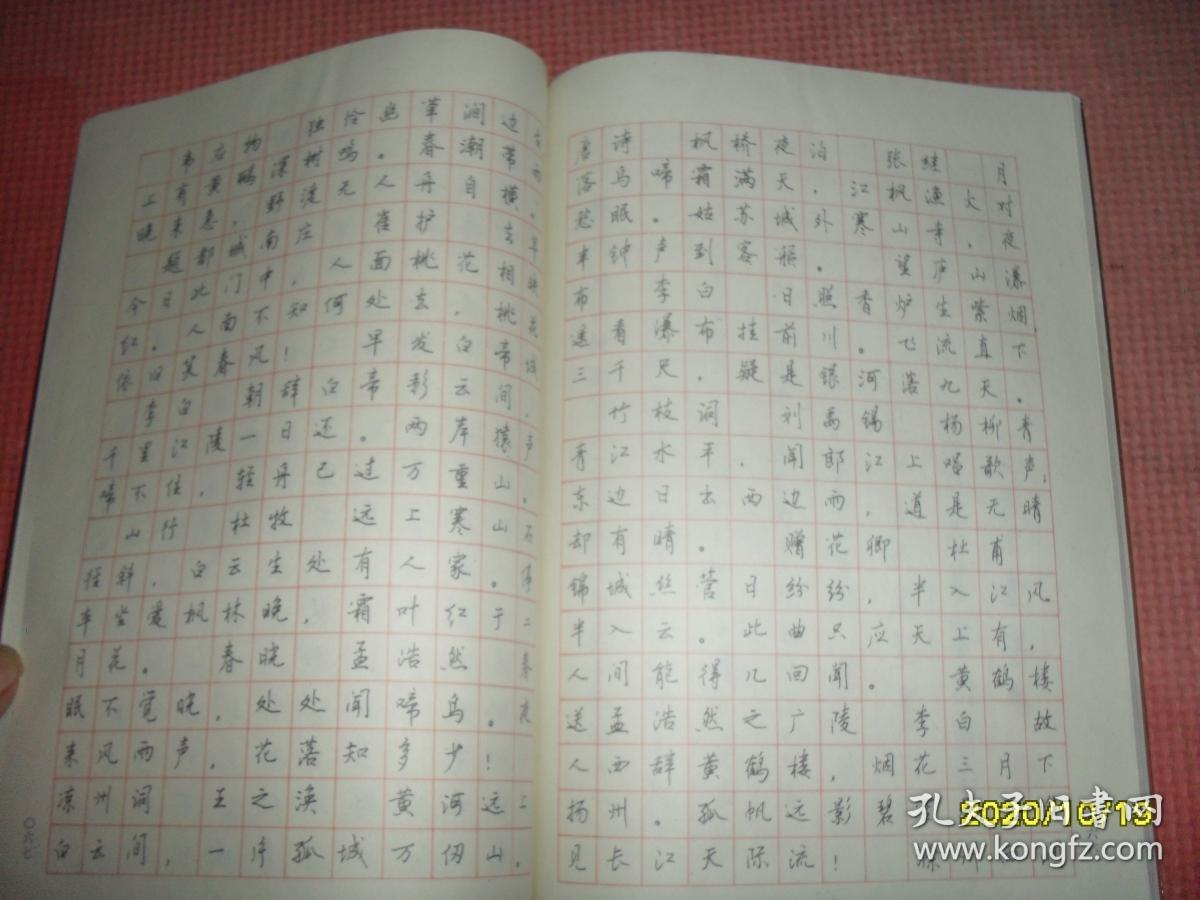 韦应物 独怜幽草涧边生
上有黄鹂深树鸣。春潮带雨
晚来急，野渡无人舟自横。
题都城南庄 崔护 去年
今日此门中，人面桃花相映
红。人面不知何处去，桃花
依旧笑春风！ 早发白帝城
李白 朝辞白帝彩云间，
千里江陵一日还。两岸猿声
啼不住，轻舟已过万重山。
山行 杜牧 远上寒山石
径斜，白云生处有人家。停
车坐爱枫林晚，霜叶红于二
月花。 春晓 孟浩然 春
眠不觉晓，处处闻啼鸟。夜
来风雨声，花落知多少！
凉州词 王之涣 黄河远上
白云间，一片孤城万仞山，
〇六七
唐诗 枫桥夜泊 张继 月
落乌啼霜满天，江枫渔火对
愁眠。姑苏城外寒山寺，夜
半钟声到客船。 望庐山瀑
布 李白 日照香炉生紫烟，
遥看瀑布挂前川。飞流直下
三千尺，疑是银河落九天。
竹枝词 刘禹锡 杨柳青
青江水平，闻郎江上唱歌声；
东边日出西边雨，道是无晴
却有晴。 赠花卿 杜甫
锦城丝管日纷纷，半入江风
半入云。此曲只应天上有，
人间能得几回闻。 黄鹤楼
送孟浩然之广陵 李白 故
人西辞黄鹤楼，烟花三月下
扬州。孤帆远影碧
见长江天际流！
2020/10/19
孔夫子旧书网
www.kongfz.com